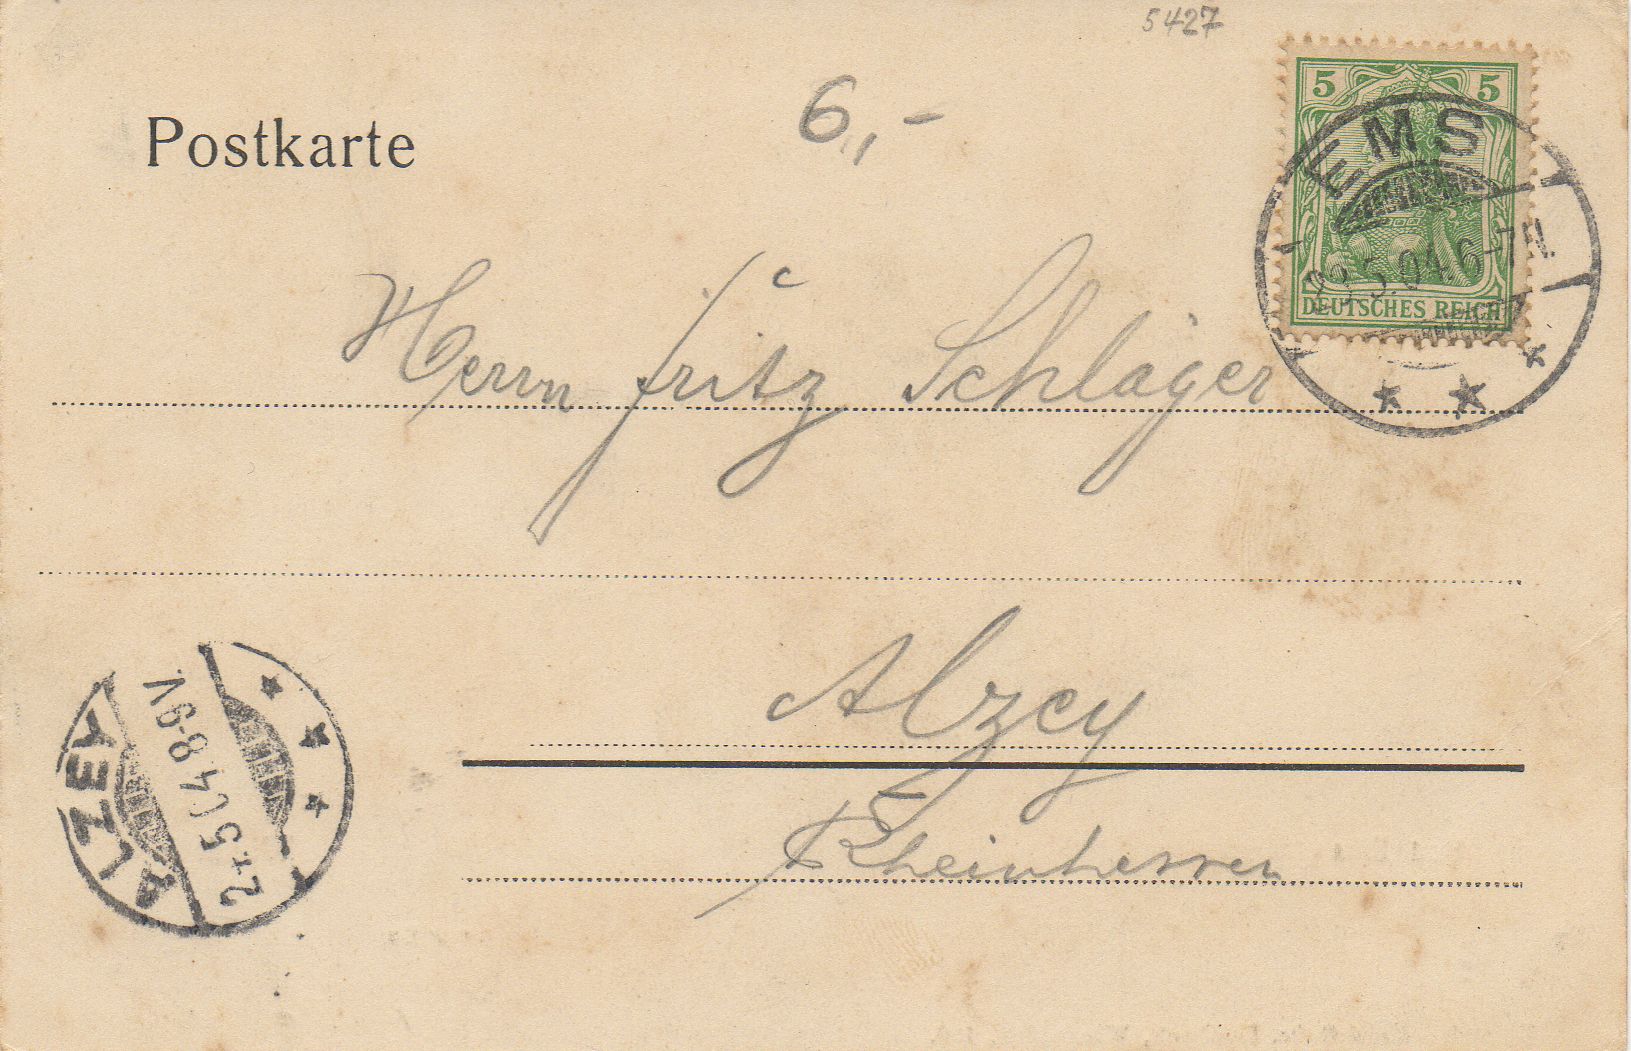 5427
6,-
Postkarte
5 5
DEUTSCHES REICH
EMS
23.5.04.6-7N.
Herrn Fritz Schläger
Alzey
Rheinhessen
ALZEY
24.5 04 8-9V.